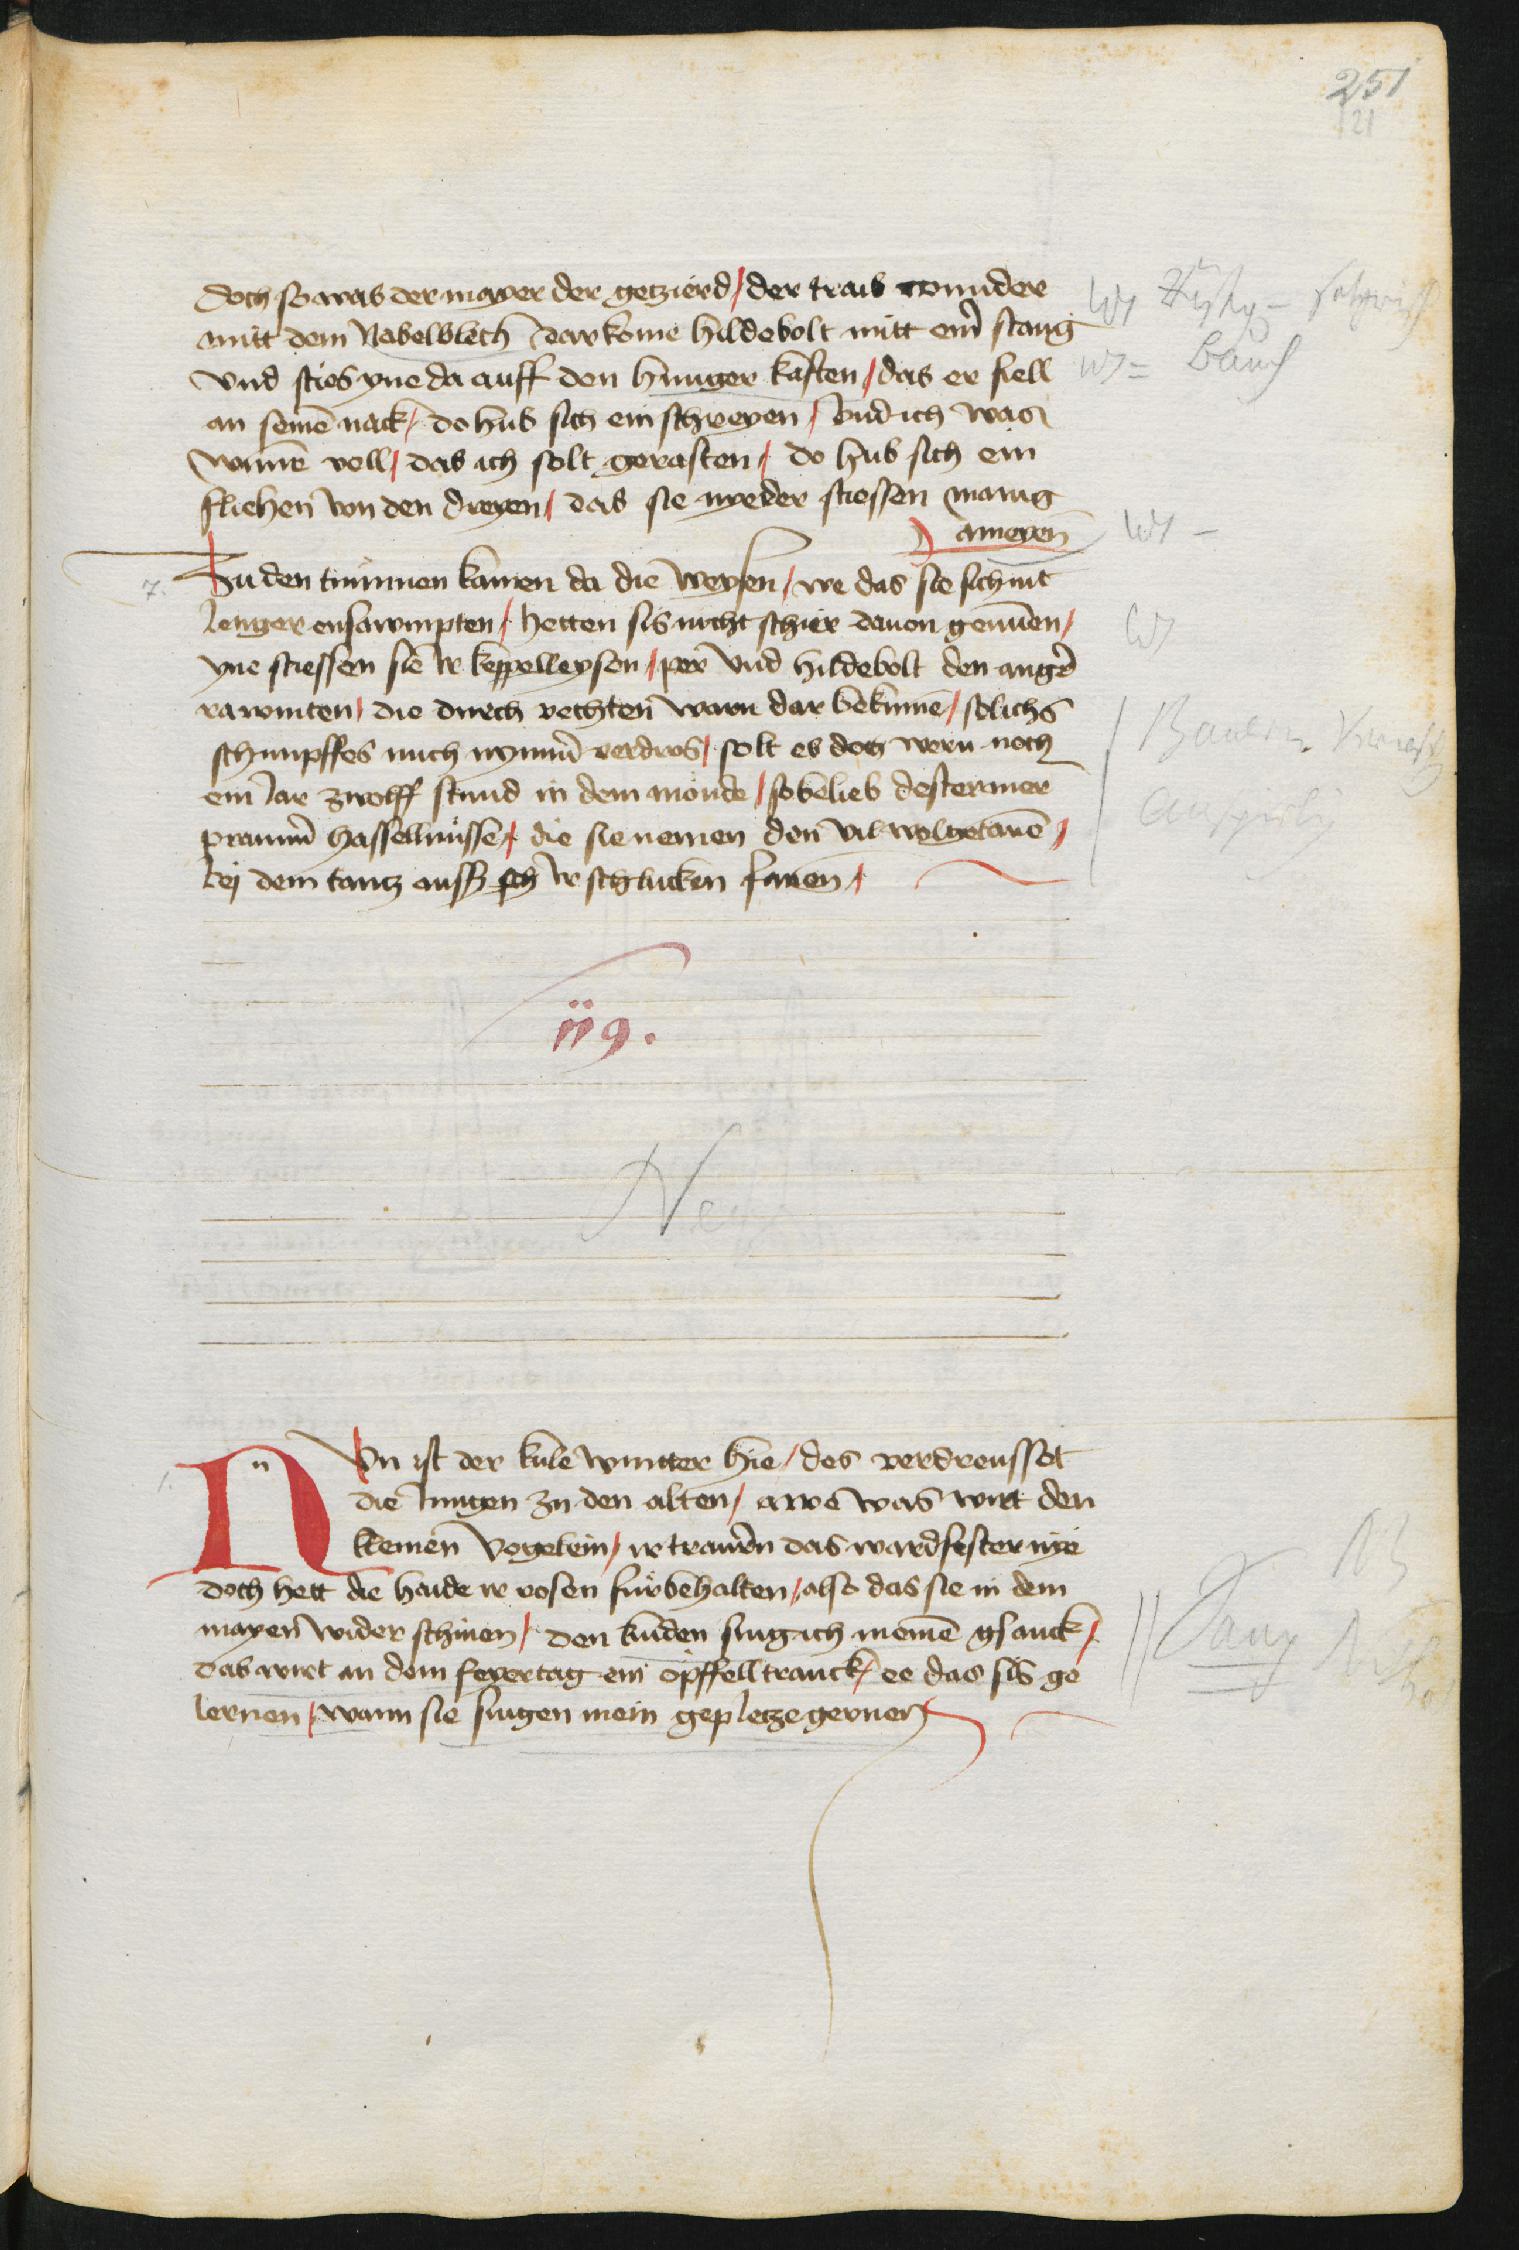 251
121
doch so was der mayer der getzierd / der traib wunder
mitt dem Nabelblech dar kome hildebolt mitt eim̄ stang
vnd sties yne da auff den hunger kasten / das er fiell
an seinē nack / do hub sich ein schreyen / vnd ich was
wunē voll / das ich solt gerasten / do hub sich ein
fliehen von den dreyen / das sie nyeder stiessen manig
ameyen
7. Zu den tummen kamen da die weysen / we das sie sich nit
lenger ensawmpten / hetten sis nicht schier dauon genūen /
yne stiessen sie ir keppelleysen / per vnd hildebolt den anger
rawmten / die durch vechten warn dar bekumē / solichs
schimpffes mich nymm̄ verdros / solt es dotz wern noch
ein Jar zwolff stund in dem monde / so belieb dester mer
prauner hasselnusse / die sie nemen den vil wolgetanē /
bej dem tantz auss sch ir schlucken fanen /
119.
Ne
1. NVn ist der kule wintter hie / des verdreusset
die Jungen zu den alten / awe was wirt den
kleinen vogelein / ir trawrn das ward fester nye
doch hett die haide ir rosen fur behalten / also das sie in dem
mayen wider schinen / den kunden sing ich meinē gsanck /
das wirt an dem feyertag ein öpffell tranck / ee das sis ge
lernen / wann sie singen mein gepletze gernen